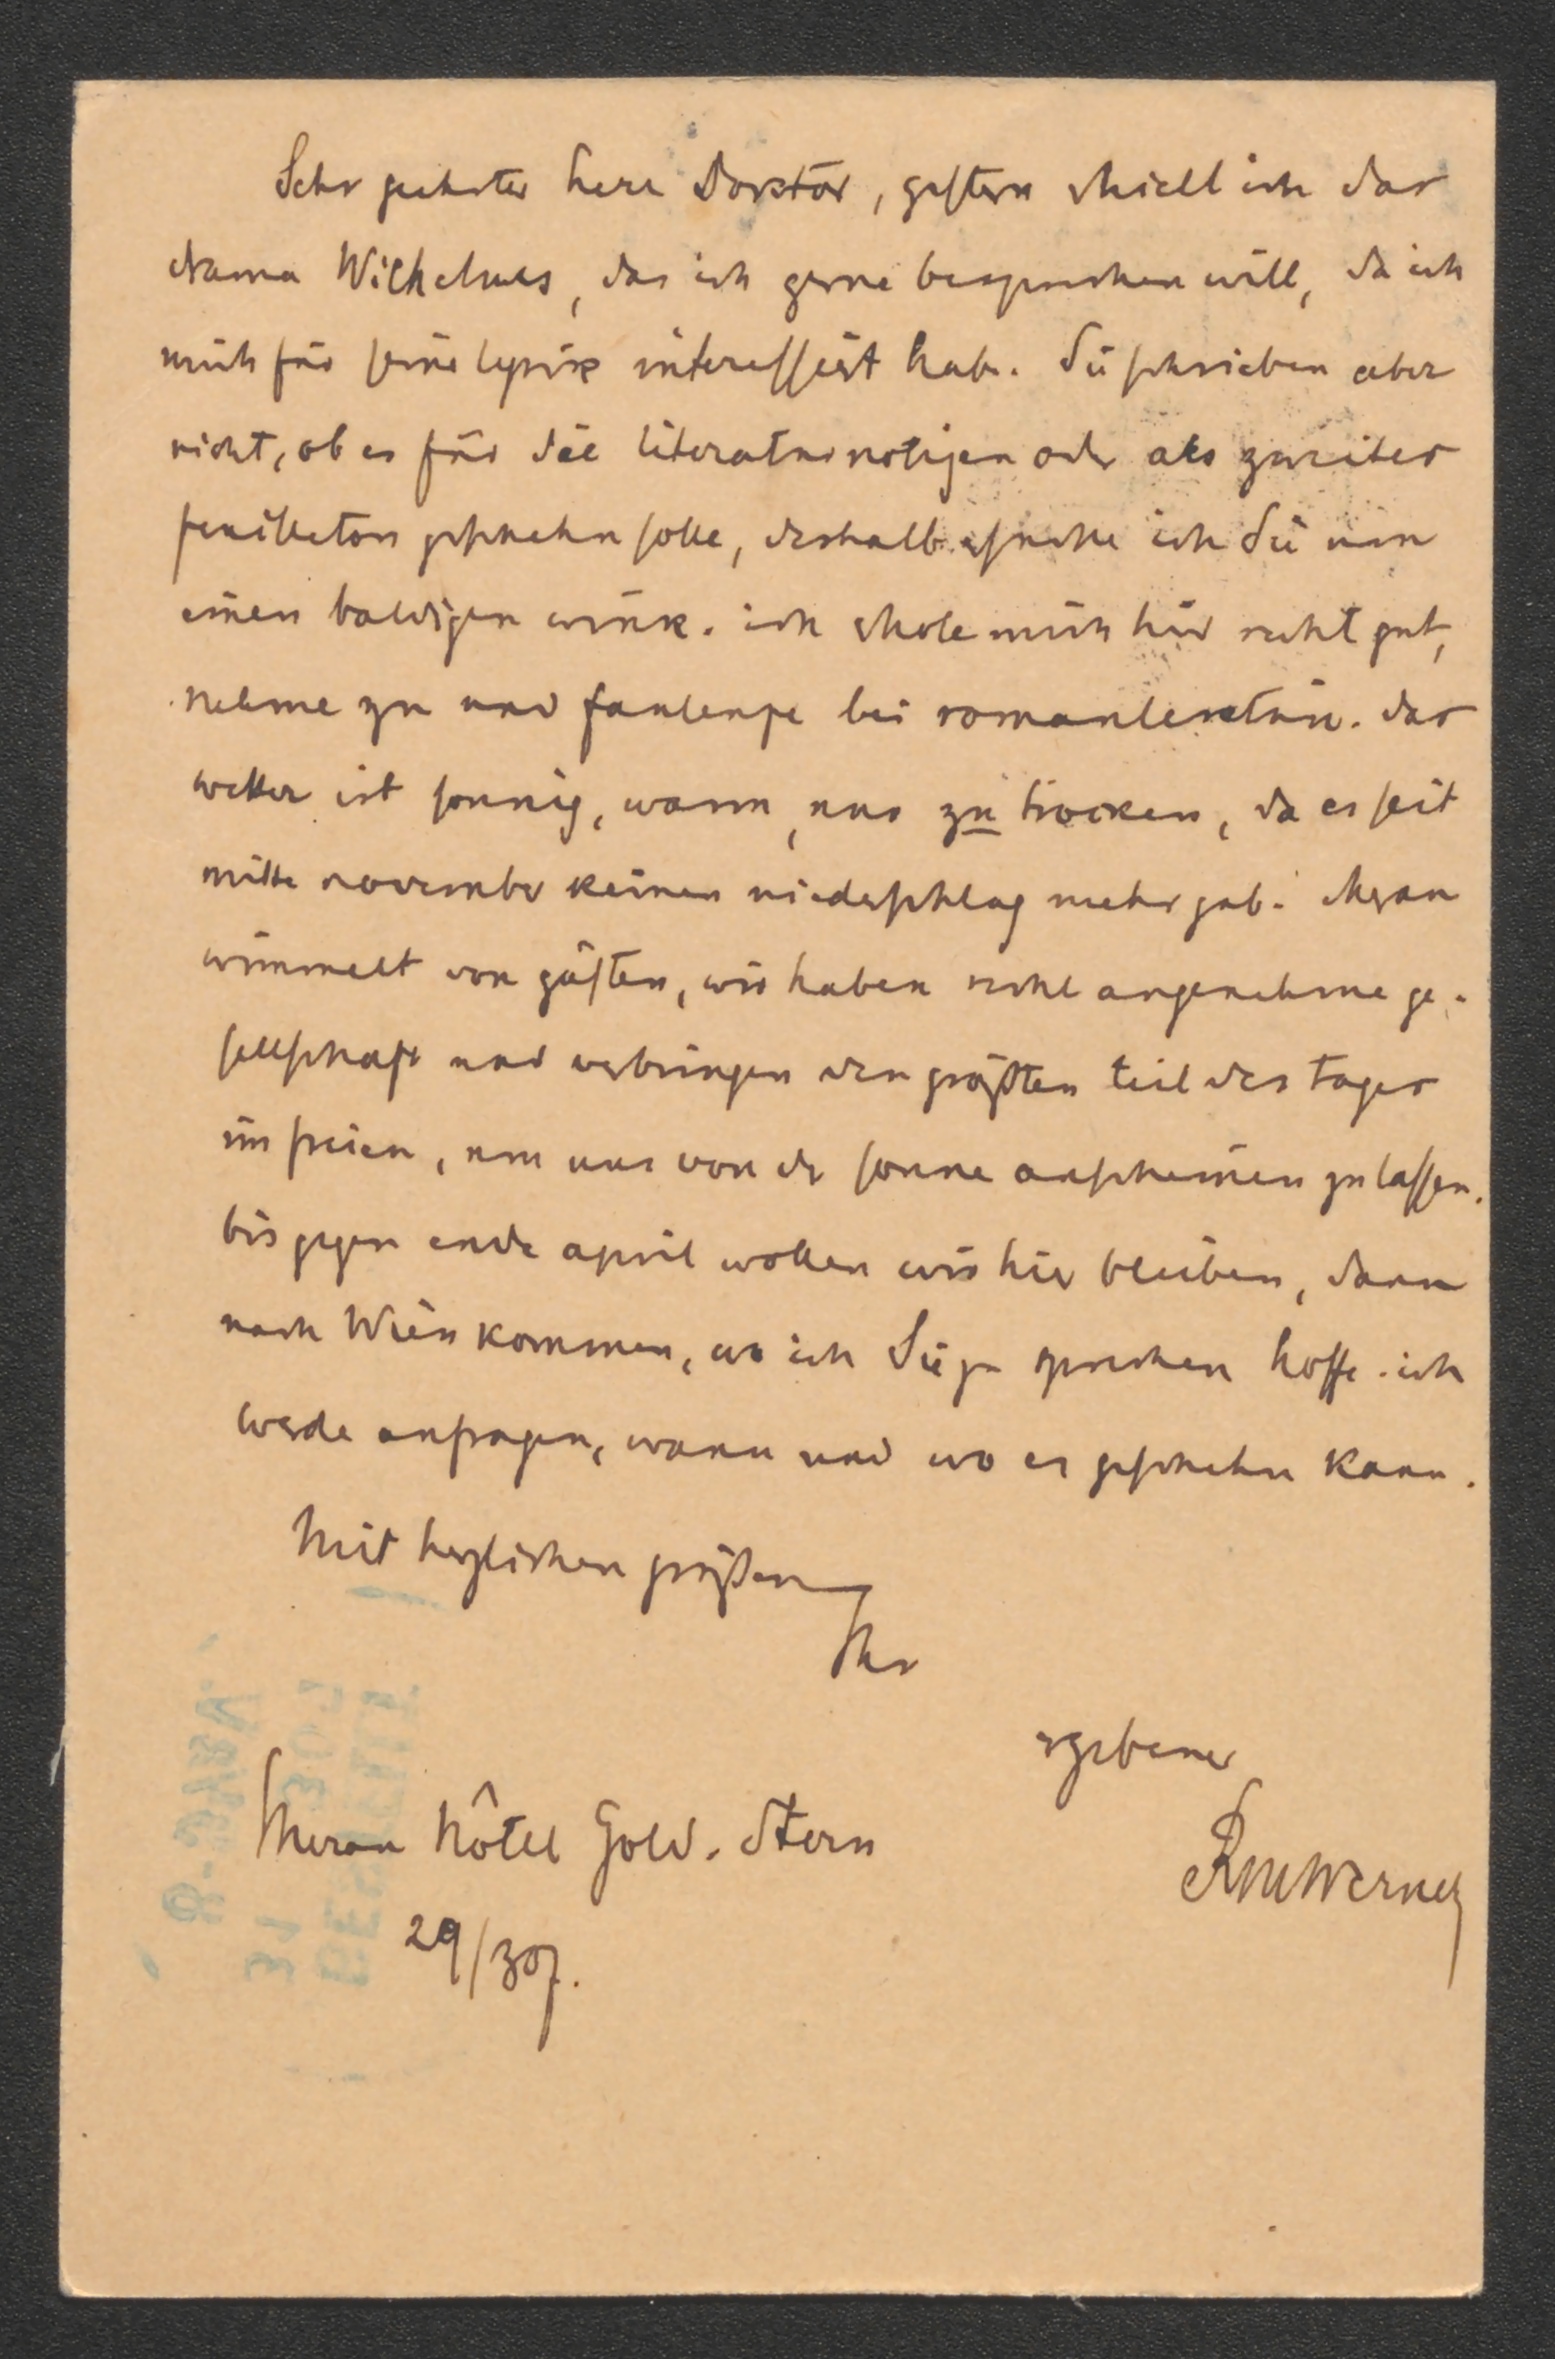 Sehr geehrter herr Doktor, gestern erhielt ich das
drama Wilhelms, das ich gerne besprechen will, da ich
mich für seine lyrik interessiert habe. Sie schrieben aber
nicht, ob es für die literaturnotizen oder als zweites
feuilleton geschehn solle, deshalb ersuche ich Sie um
einen baldigen wink. ich erhole mich hier recht gut,
nehme zu und faulenze bei romanlektüre. das
wetter ist sonnig, warm, nur zu trocken, da es seit
mitte november keinen niederschlag mehr gab. Meran
wimmelt von gästen, wir haben recht angenehme ge-
sellschaft und verbringen den größten teil des tages
im freien, um uns von der sonne anscheinen zu lassen.
bis gegen ende april wollen wir hier bleiben, dann
nach Wien kommen, wo ich Sie zu sprechen hoffe. ich
werde anfragen, wann und wo es geschehn kann.
Mit herzlichen grüßen
Ihr
ergebener
RMWerner
Meran hôtel Gold. Stern
29/3 07.